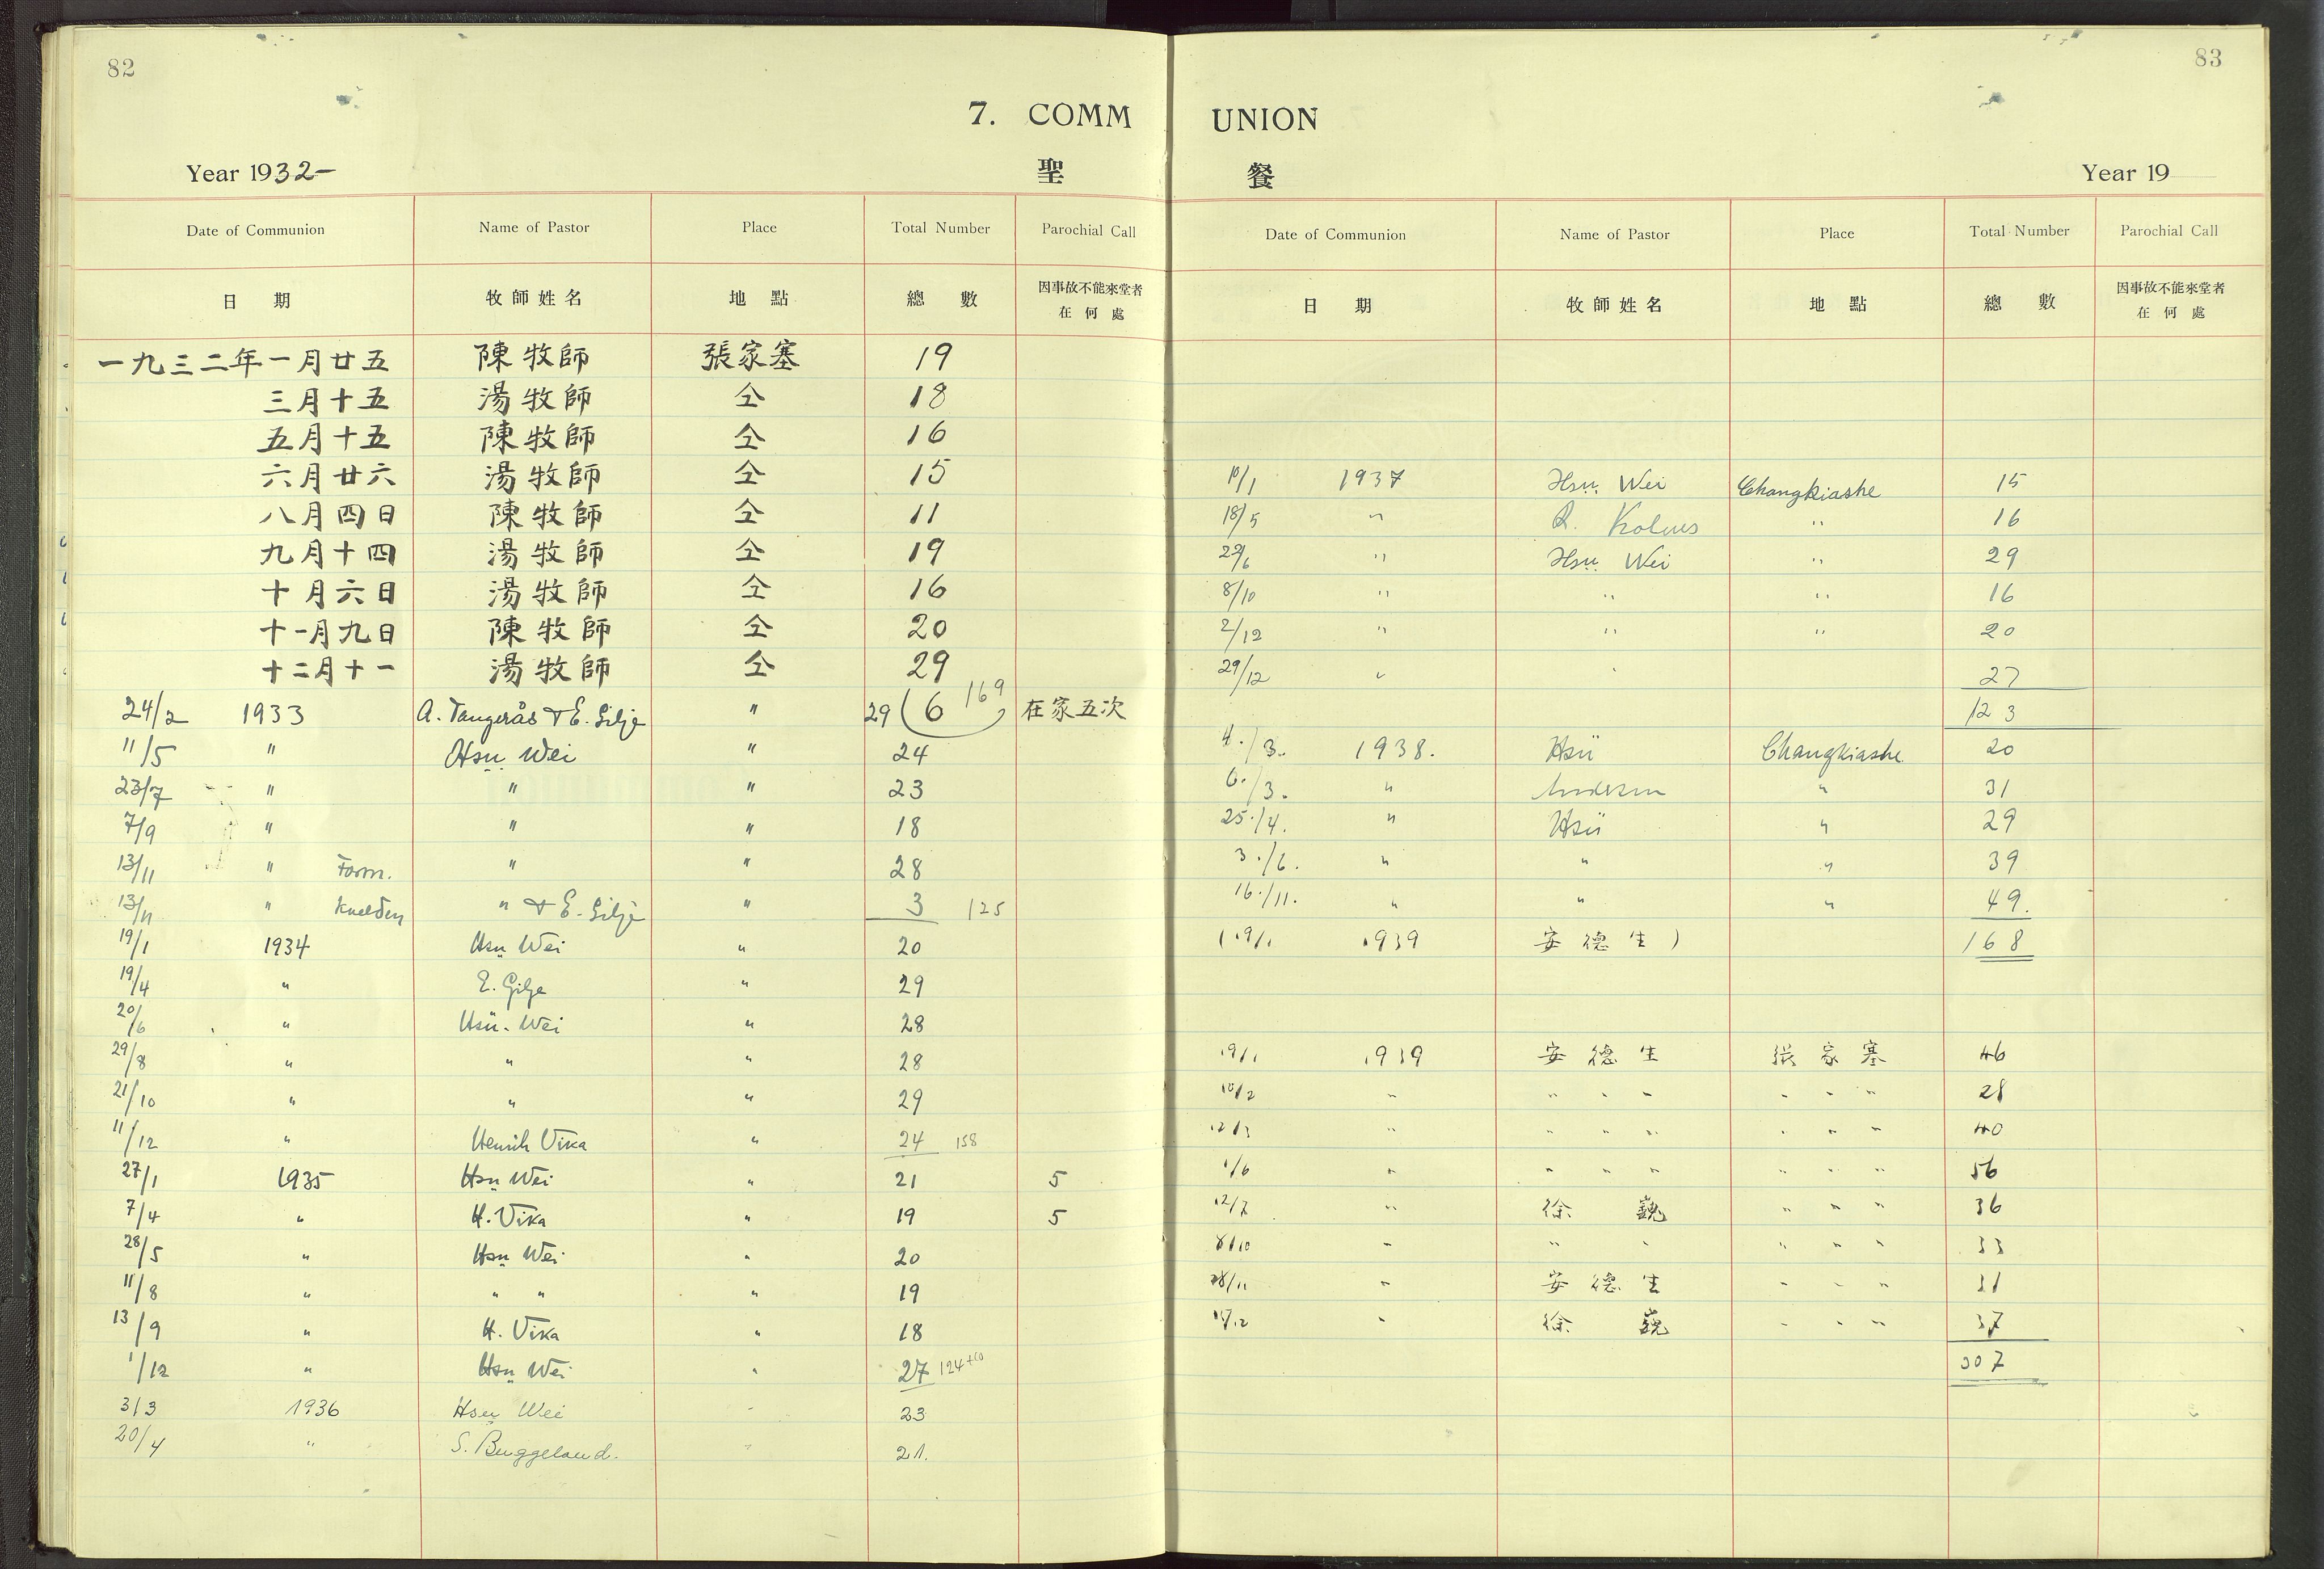 82
7. COMM
Year 1932-
聖
Date of Communion Name of Pastor Place Total Number Parochial Call
日 期 牧師姓名 地點 總數 因事故不能來堂者
在何處
一九三二年一月廿五 陳牧師 張家塞 19
三月十五 湯牧師 仝 18
五月十五 陳牧師 仝 16
六月廿六 湯牧師 仝 15
八月四日 陳牧師 仝 11
九月十四 湯牧師 仝 19
十月六日 湯牧師 仝 16
十一月九日 陳牧師 仝 20
十二月十一 湯牧師 仝 29
169
24/2 1933 A. Tangerås & E. Gilje " 29 (6) 在家五次
11/5 " Hsü Wei " 24
23/7 " " " 23
7/9 " " " 18
13/11 " Form. " " 28
13/11 " Kvelden " & E. Gilje " 3 125
19/1 1934 Hsü Wei " 20
19/4 " E. Gilje " 29
20/6 " Hsü-Wei " 28
29/8 " " " 28
21/10 " " " 29
11/12 " Henrik Vika " 24 158
27/1 1935 Hsü Wei " 21 5
7/4 " H. Vika " 19 5
28/5 " Hsü Wei " 20
11/8 " " " " 19
13/9 " H. Vika " 18
1/12 " Hsü Wei " 27 124+10
3/3 1936 Hsü Wei " 23
20/4 " S. Buggeland. " 21.
83
UNION
餐
Year 19
Date of Communion Name of Pastor Place Total Number Parochial Call
日 期 牧師姓名 地點 總數 因事故不能來堂者
在何處
10/1 1937 Hsü Wei Changkiashe 15
18/5 " R. Kolnes " 16
29/6 " Hsü Wei " 29
8/10 " " " 16
2/12 " " " 20
29/12 " " 27
123
4./3. 1938. Hsü Changkiashe 20
6./3. " Anderson " 31
25./4. " Hsü " 29
3./6. " " " 39
16./11. " " " 49.
(19/1 1939 安德生) 168
19/1 1939 安德生 張家塞 46
10/2 " " " " " " " 28
12/3 " " " " " " " 40
1/6 " " " " " " " 56
12/7 " 徐巍 " " " 36
8/10 " " " " " " 33
28/11 " 安德生 " " " 31
15/12 " 徐巍 " " " 37
307